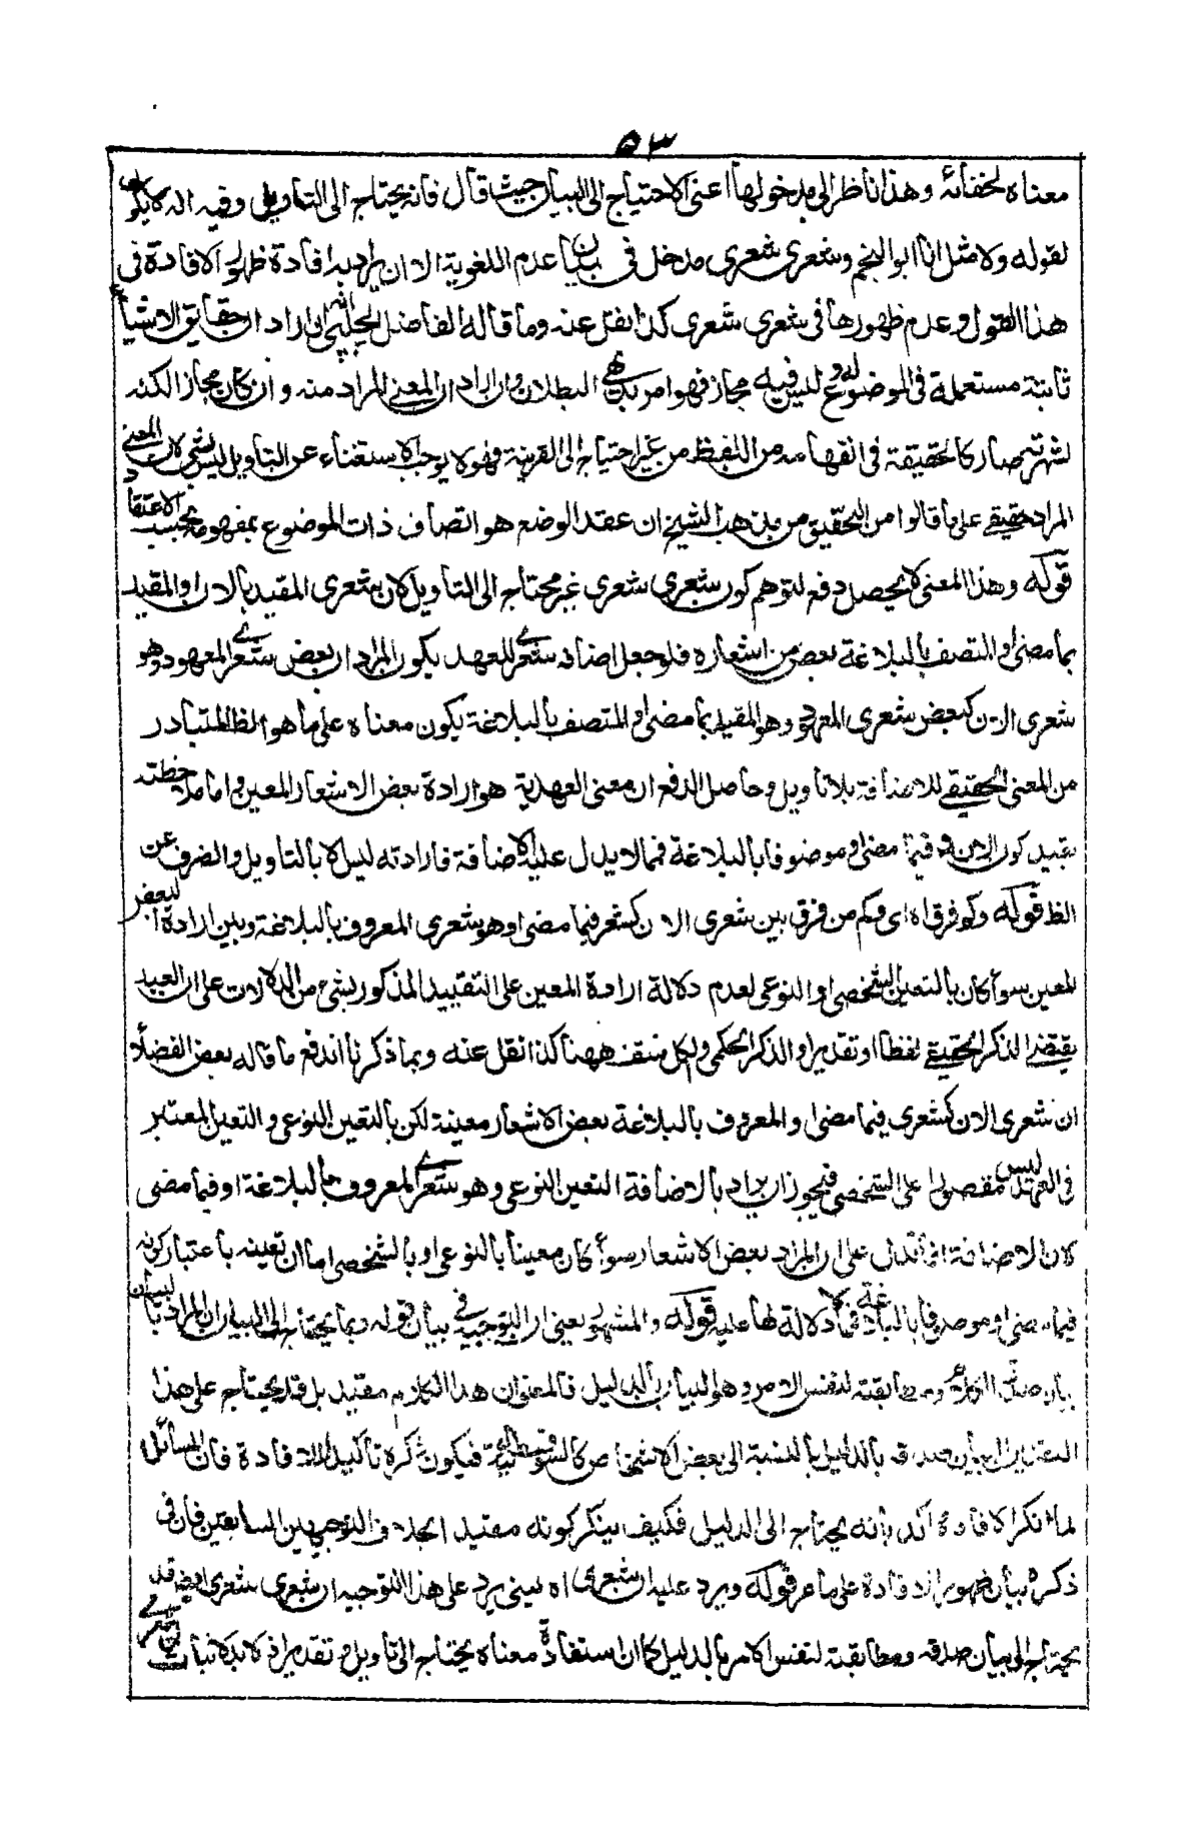 ٥٣
معناه لخفائه وهذا ناظر الى مدخولها اعنى الاحتياج الى البيان حيث قال فانه يحتاج الى التاويل وفيه انه لا يكون
لقوله ولا مثل انا ابو النجم وشعرى شعرى مدخل فى بيان عدم اللغوية الا ان يراد به افادة ظهور الافادة فى
هذا القول وعدم ظهورها فى شعرى شعرى كذا نقل عنه وما قاله الفاضل الجلبى ان اراد ان حقايق الاشياء
ثابتة مستعملة فى الموضوع له وليس فيه مجاز فهو امر بديهى البطلان وان اراد ان المعنى المراد منه وان كان مجازا لكنه
لشهرته صار كالحقيقة فى انفهامه من اللفظ من غير احتياج الى القرينة فهو لا يوجب الاستغناء عن التاويل ليس بشئ لان المعنى
المراد حقيقى على ما قالوا من التحقيق من مذهب الشيخ ان عقد الوضع هو اتصاف ذات الموضوع بمفهومه بحسب الاعتقاد
قوله وهذا المعنى لا يحصل دفع لتوهم كون شعرى شعرى غير محتاج الى التاويل لان شعرى المقيد بالان والمقيد
بما مضى او المتصف بالبلاغة بعض من اشعاره فلو جعل اضافة شعرى للعهد يكون المراد ان بعض شعرى المعهود وهو
شعرى الان كبعض شعرى المعهود وهو المقيد بما مضى او المتصف بالبلاغة يكون معناه على ما هو الظ المتبادر
من المعنى الحقيقى للاضافة بلا تاويل وحاصل الدفع ان معنى العهدية هو ارادة بعض الاشعار المعين واما ملاحظته
بقيد كون الان وفيما مضى او موصوفا بالبلاغة فمما لا يدل عليه الاضافة فارادته ليس الا بالتاويل والصرف عن
الظ قوله وكم فرق اه اى وكم من فرق بين شعرى الان كشعرى فيما مضى او هو شعرى المعروف بالبلاغة وبين ارادة البعض
المعين سواء كان بالتعين الشخصى او النوعى لعدم دلالة ارادة المعين على التقييد المذكور بشئ من الدلالات على ان العهد
يقتضى الذكر الحقيقى لفظا او تقديرا او الذكر الحكمى والكل منتف ههنا كذا نقل عنه وبما ذكرنا اندفع ما قاله بعض الفضلاء
ان شعرى الان كشعرى فيما مضى او المعروف بالبلاغة بعض الاشعار معينة لكن بالتعين النوعى والتعين المعتبر
فى العهد ليس مقصورا على الشخصى فيجوز ان يراد بالاضافة التعين النوعى وهو شعرى المعروف بالبلاغة او فيما مضى
لان الاضافة انما تدل على ان المراد بعض الاشعار سواء كان معينا بالنوعى او بالشخصى اما ان تعينه باعتبار كونه
فيما مضى او موصوفا بالبلاغة فمما لا دلالة لها عليه قوله والمشهور يعنى ان التوجيه فى بيان قوله ربما يحتاج الى البيان ان المراد بالبيان
بيان صدق الكلام ومطابقته لنفس الامر وهو البيان بالدليل فالمعنى ان هذا الكلام مفيد بل قد يحتاج على هذا
التقدير الى بيان صدقه بالدليل بالنسبة الى بعض الاشخاص كالسوفسطائية فيكون ذكره تاكيدا للافادة فان السائل
لما انكر الافادة اكد بانه يحتاج الى الدليل فكيف ينكر كونه مفيدا بخلاف التوجيهين السابقين فان فى
ذكره بيان ظهور الافادة على ما مر قوله ويرد عليه ان شعرى اه يعنى يرد على هذا التوجيه ان شعرى شعرى ايضا قد
يحتاج الى بيان صدقه ومطابقته لنفس الامر بالدليل كما ان استفادة معناه يحتاج الى تاويل وتقدير اذ لا بد لاثبات